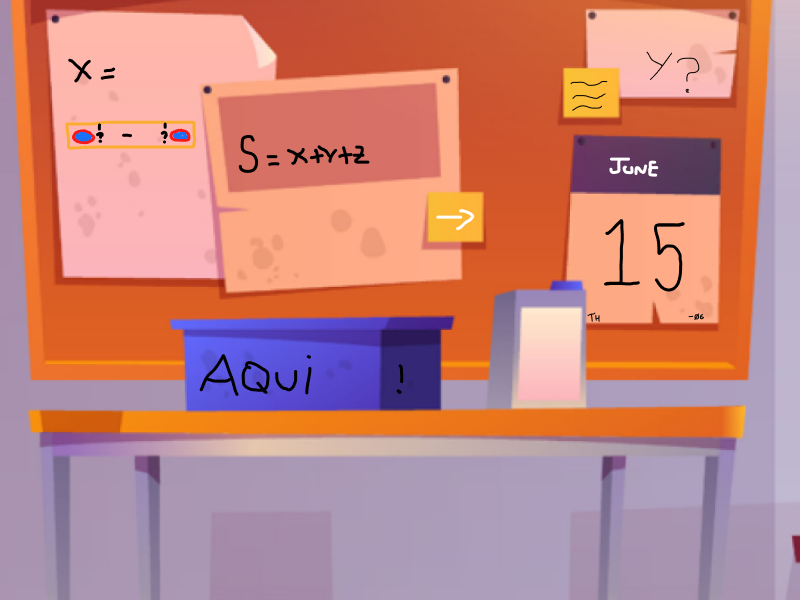 X =
! ? - ! ?
S = X+Y+Z
Y?
JUNE
15
TH -06
AQUI !